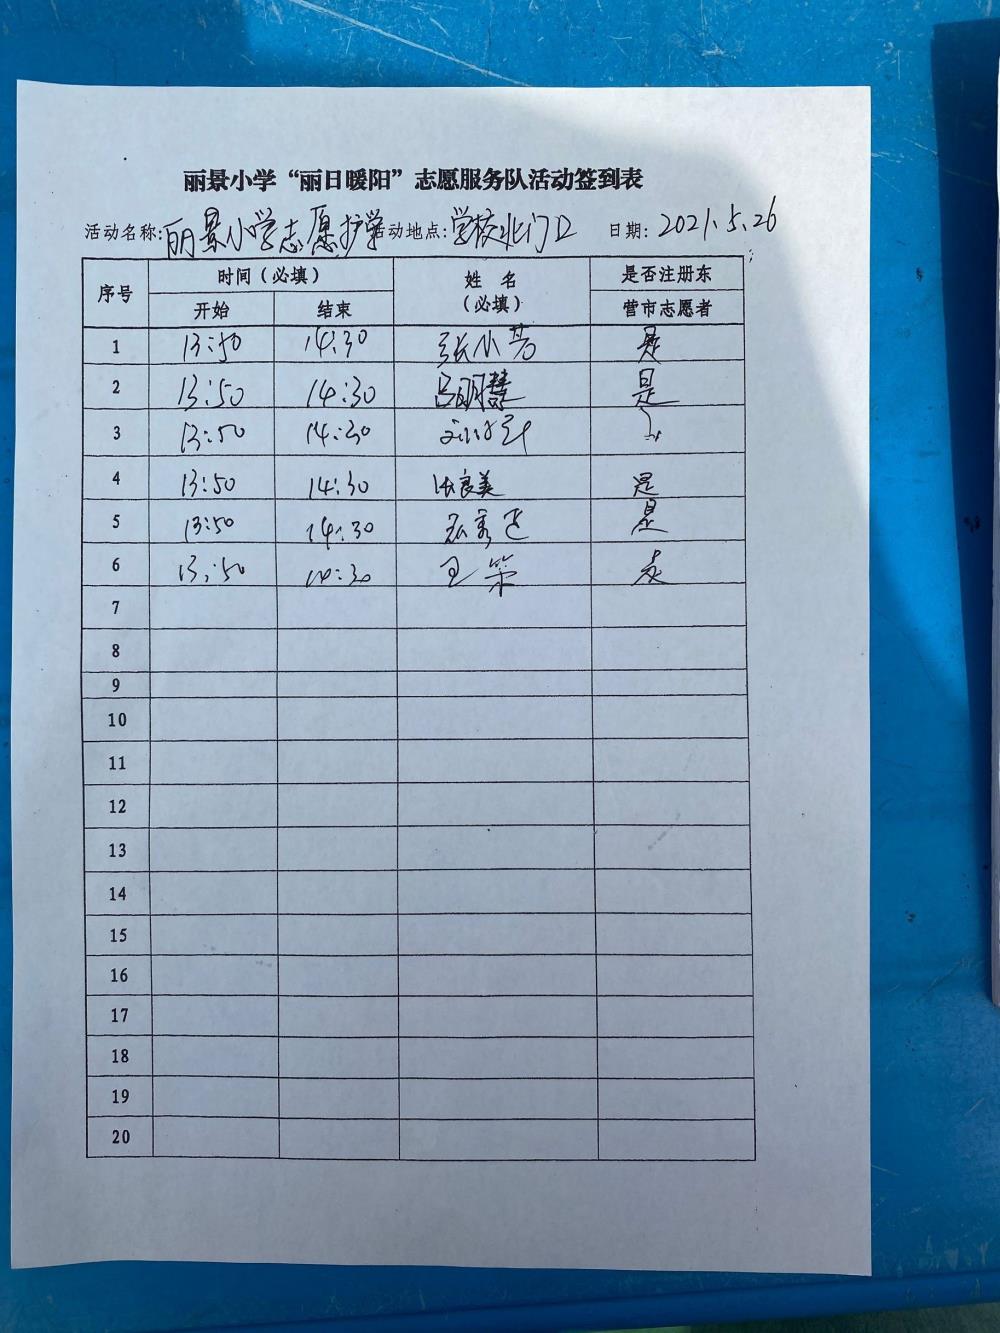 丽景小学“丽日暖阳”志愿服务队活动签到表
活动名称:丽景小学志愿护学 活动地点:学校北门口 日期:2021.5.26
序号 时间（必填） 姓名（必填） 是否注册东营市志愿者
开始 结束
1 13:50 14:30 张小芳 是
2 13:50 14:30 吕明慧 是
3 13:50 14:30
4 13:50 14:30 张良美 是
5 13:50 14:30 是
6 13:50 14:30 王荣 是
7
8
9
10
11
12
13
14
15
16
17
18
19
20